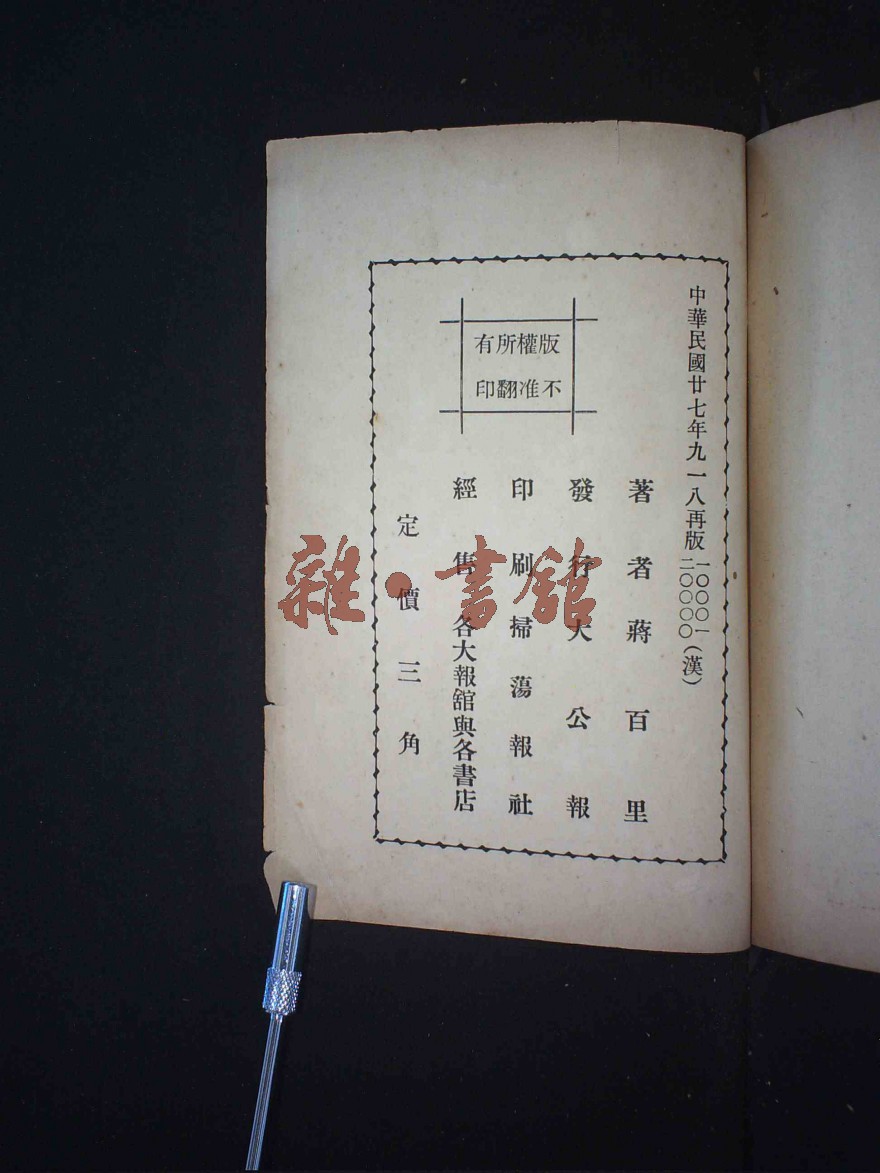 中華民國廿七年九一八再版 一〇〇〇一 二〇〇〇〇(漢)
著者蔣百里
發行大公報
印刷掃蕩報社
經售各大報館與各書店
定價三角
版權所有
不准翻印
雜·書館